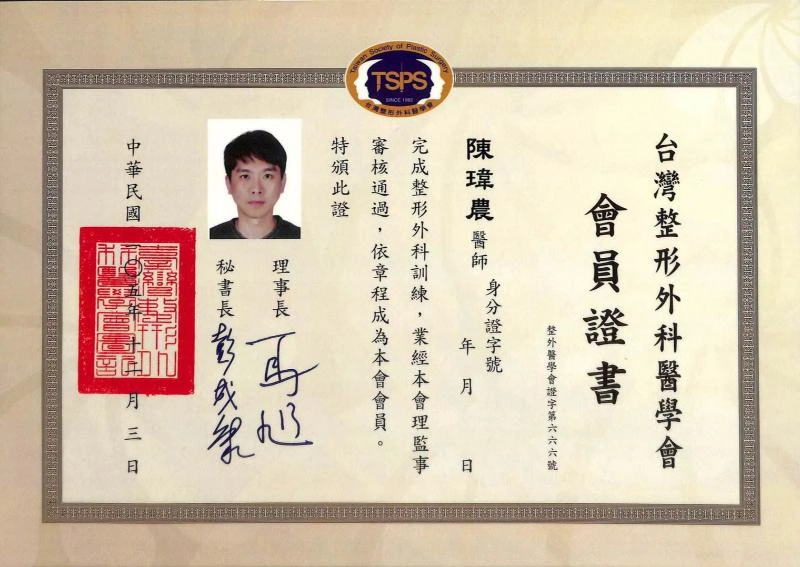 Taiwan Society of Plastic Surgery
TSPS
SINCE 1982
台灣整形外科醫學會
台灣整形外科醫學會
會員證書
整外醫學會證字第六六六號
陳瑋農醫師 身分證字號
年 月 日
完成整形外科訓練，業經本會理監事
審核通過，依章程成為本會會員。
特頒此證
理事長
秘書長
中華民國一〇五年十二月三日